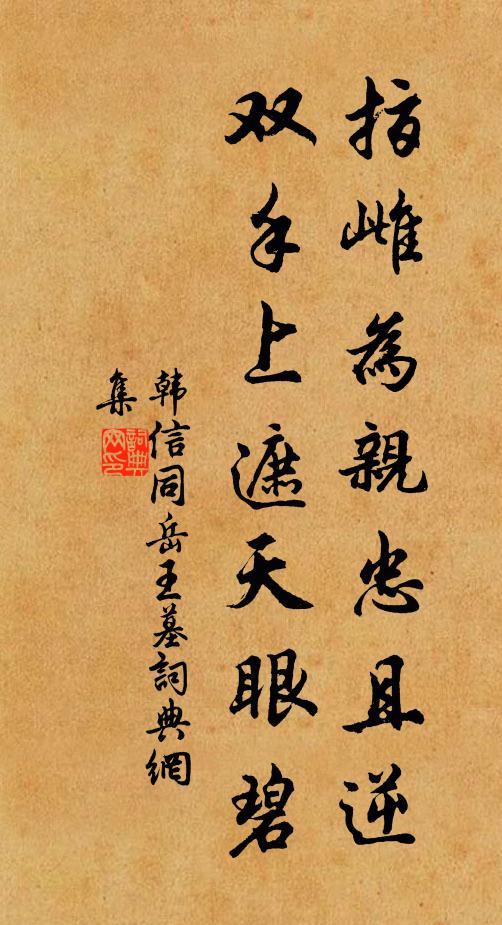 指雌為親忠且逆
双手上遮天眼碧
韩信同岳王墓詞典網
集
詞典
网印